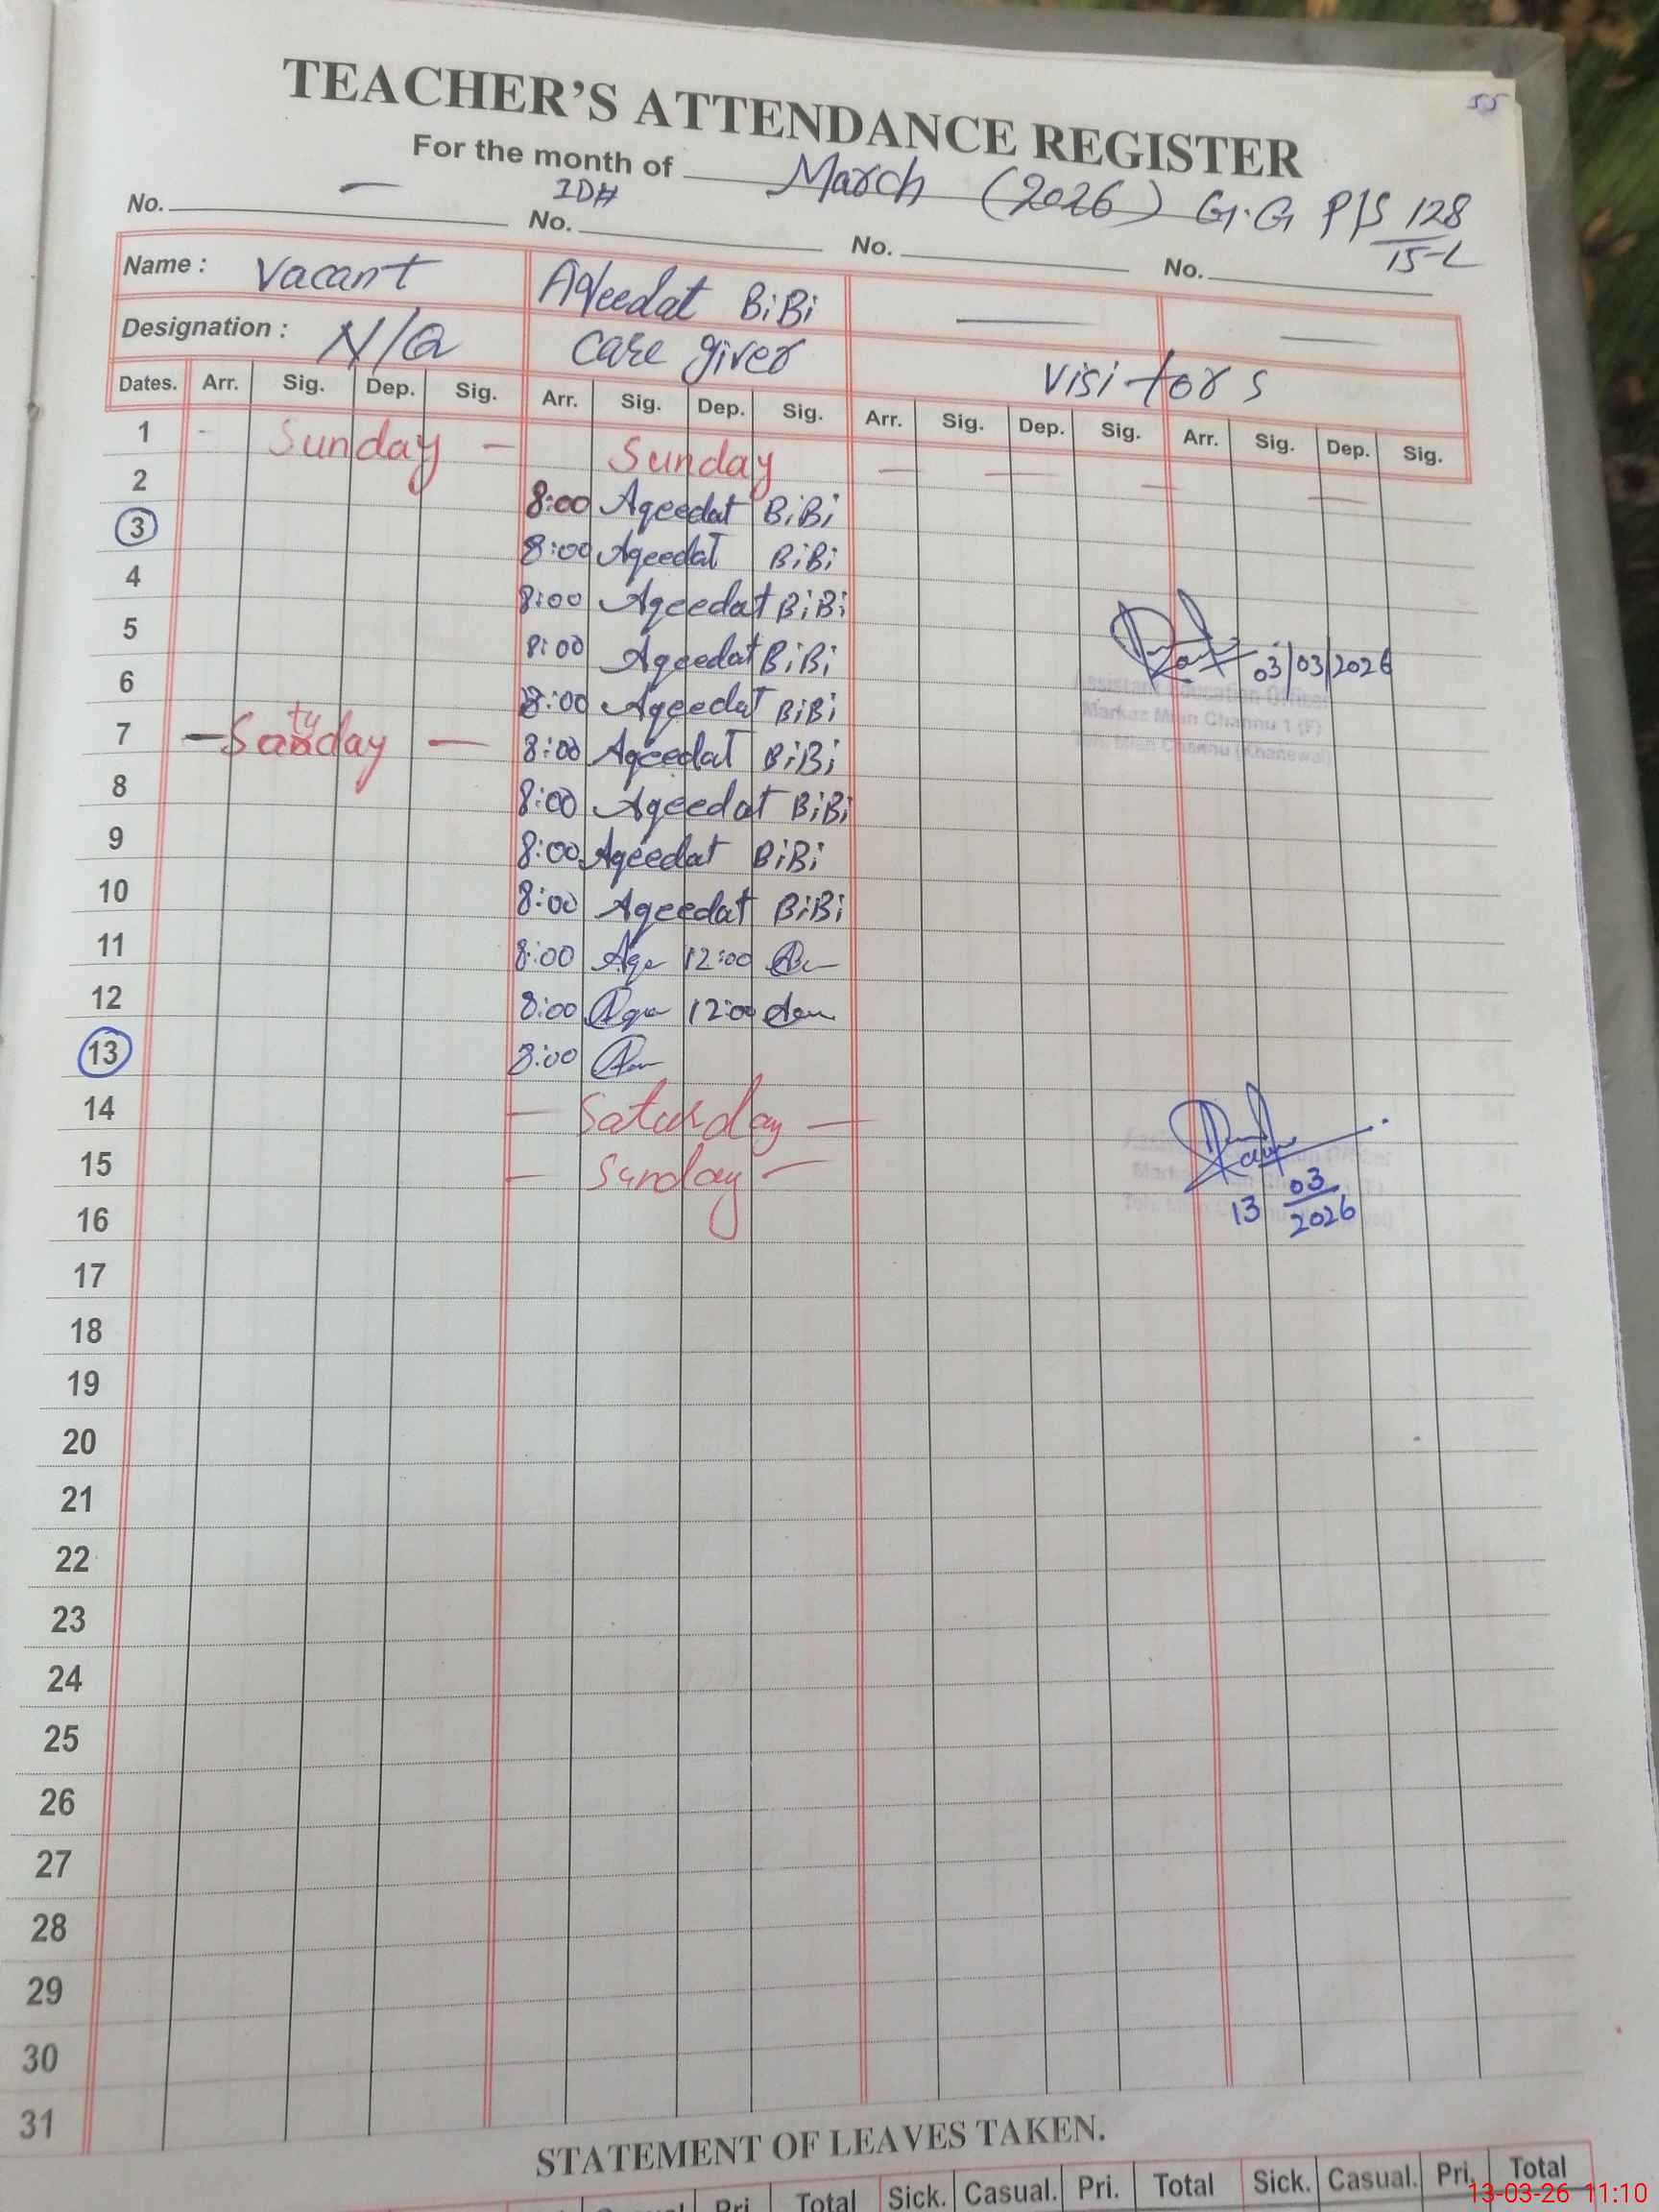 55
TEACHER'S ATTENDANCE REGISTER
For the month of March (2026) G.G P/S 128/15-L
No. — No. ID# No. No.
Name : Vacant Aqeedat BiBi — —
Designation : N/A Care giver Visitors
Dates. Arr. Sig. Dep. Sig. Arr. Sig. Dep. Sig. Arr. Sig. Dep. Sig. Arr. Sig. Dep. Sig.
1 - Sunday - Sunday — — — —
2 8:00 Aqeedat BiBi
3 8:00 Aqeedat BiBi
4 8:00 Aqeedat BiBi
5 8:00 Aqeedat BiBi 03/03/2026
Assistant Education Officer
6 8:00 Aqeedat BiBi
Markaz Mian Channu 1 (F)
7 — Satday — 8:00 Aqeedat BiBi
Teh: Mian Channu (Khanewal)
8 8:00 Aqeedat BiBi
9 8:00 Aqeedat BiBi
10 8:00 Aqeedat BiBi
11 8:00 Aqe 12:00
12 8:00 Aqe 12:00
13 8:00
14 — Saturday —
15 — Sunday —
13 03/2026
16
17
18
19
20
21
22
23
24
25
26
27
28
29
30
31
STATEMENT OF LEAVES TAKEN.
Pri. Total Sick. Casual. Pri. Total Sick. Casual. Pri. Total
13-03-26 11:10